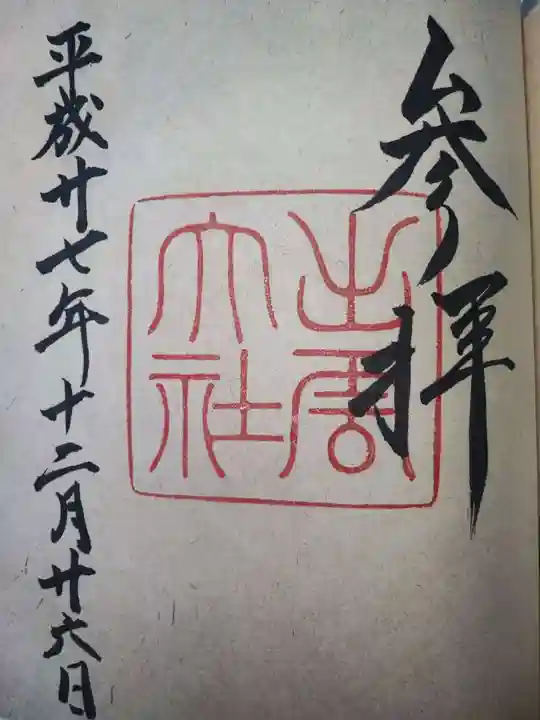 参拝
出雲大社
平成廿七年十二月廿六日